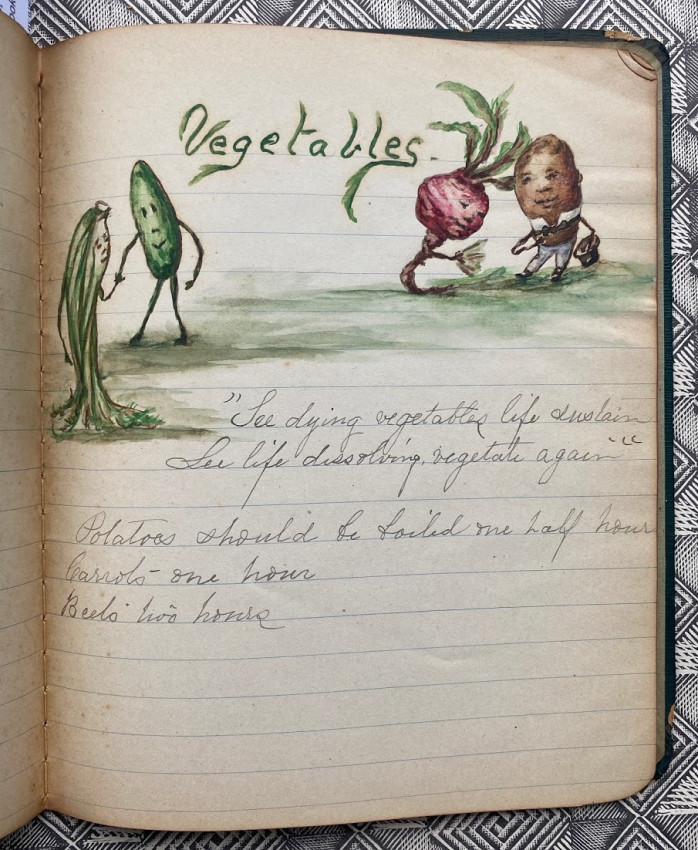 Vegetables.
"See dying vegetables life sustain
See life dissolving, vegetate again"
Potatoes should be boiled one half hour
Carrots one hour
Beets two hours